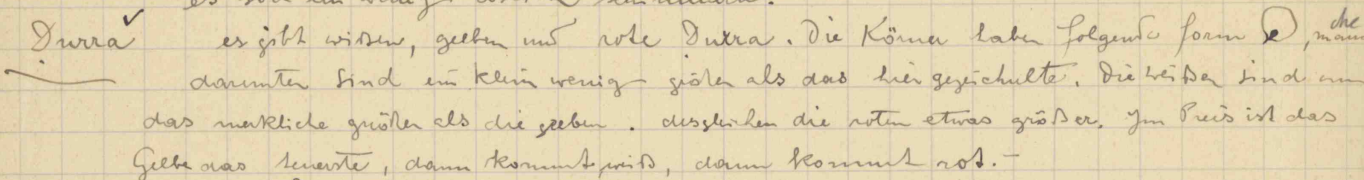 Durra es gibt weißen, gelben und rote Durra. Die Körner haben folgende form, manche
darunten sind ein klein wenig größer als das hier gezeichnete. Die weißen sind um
das merkliche größer als die gelben. desgleichen die roten etwas größer. Im Preis ist das
Gelbe das teuerste, dann kommt weiß, dann kommt rot.-